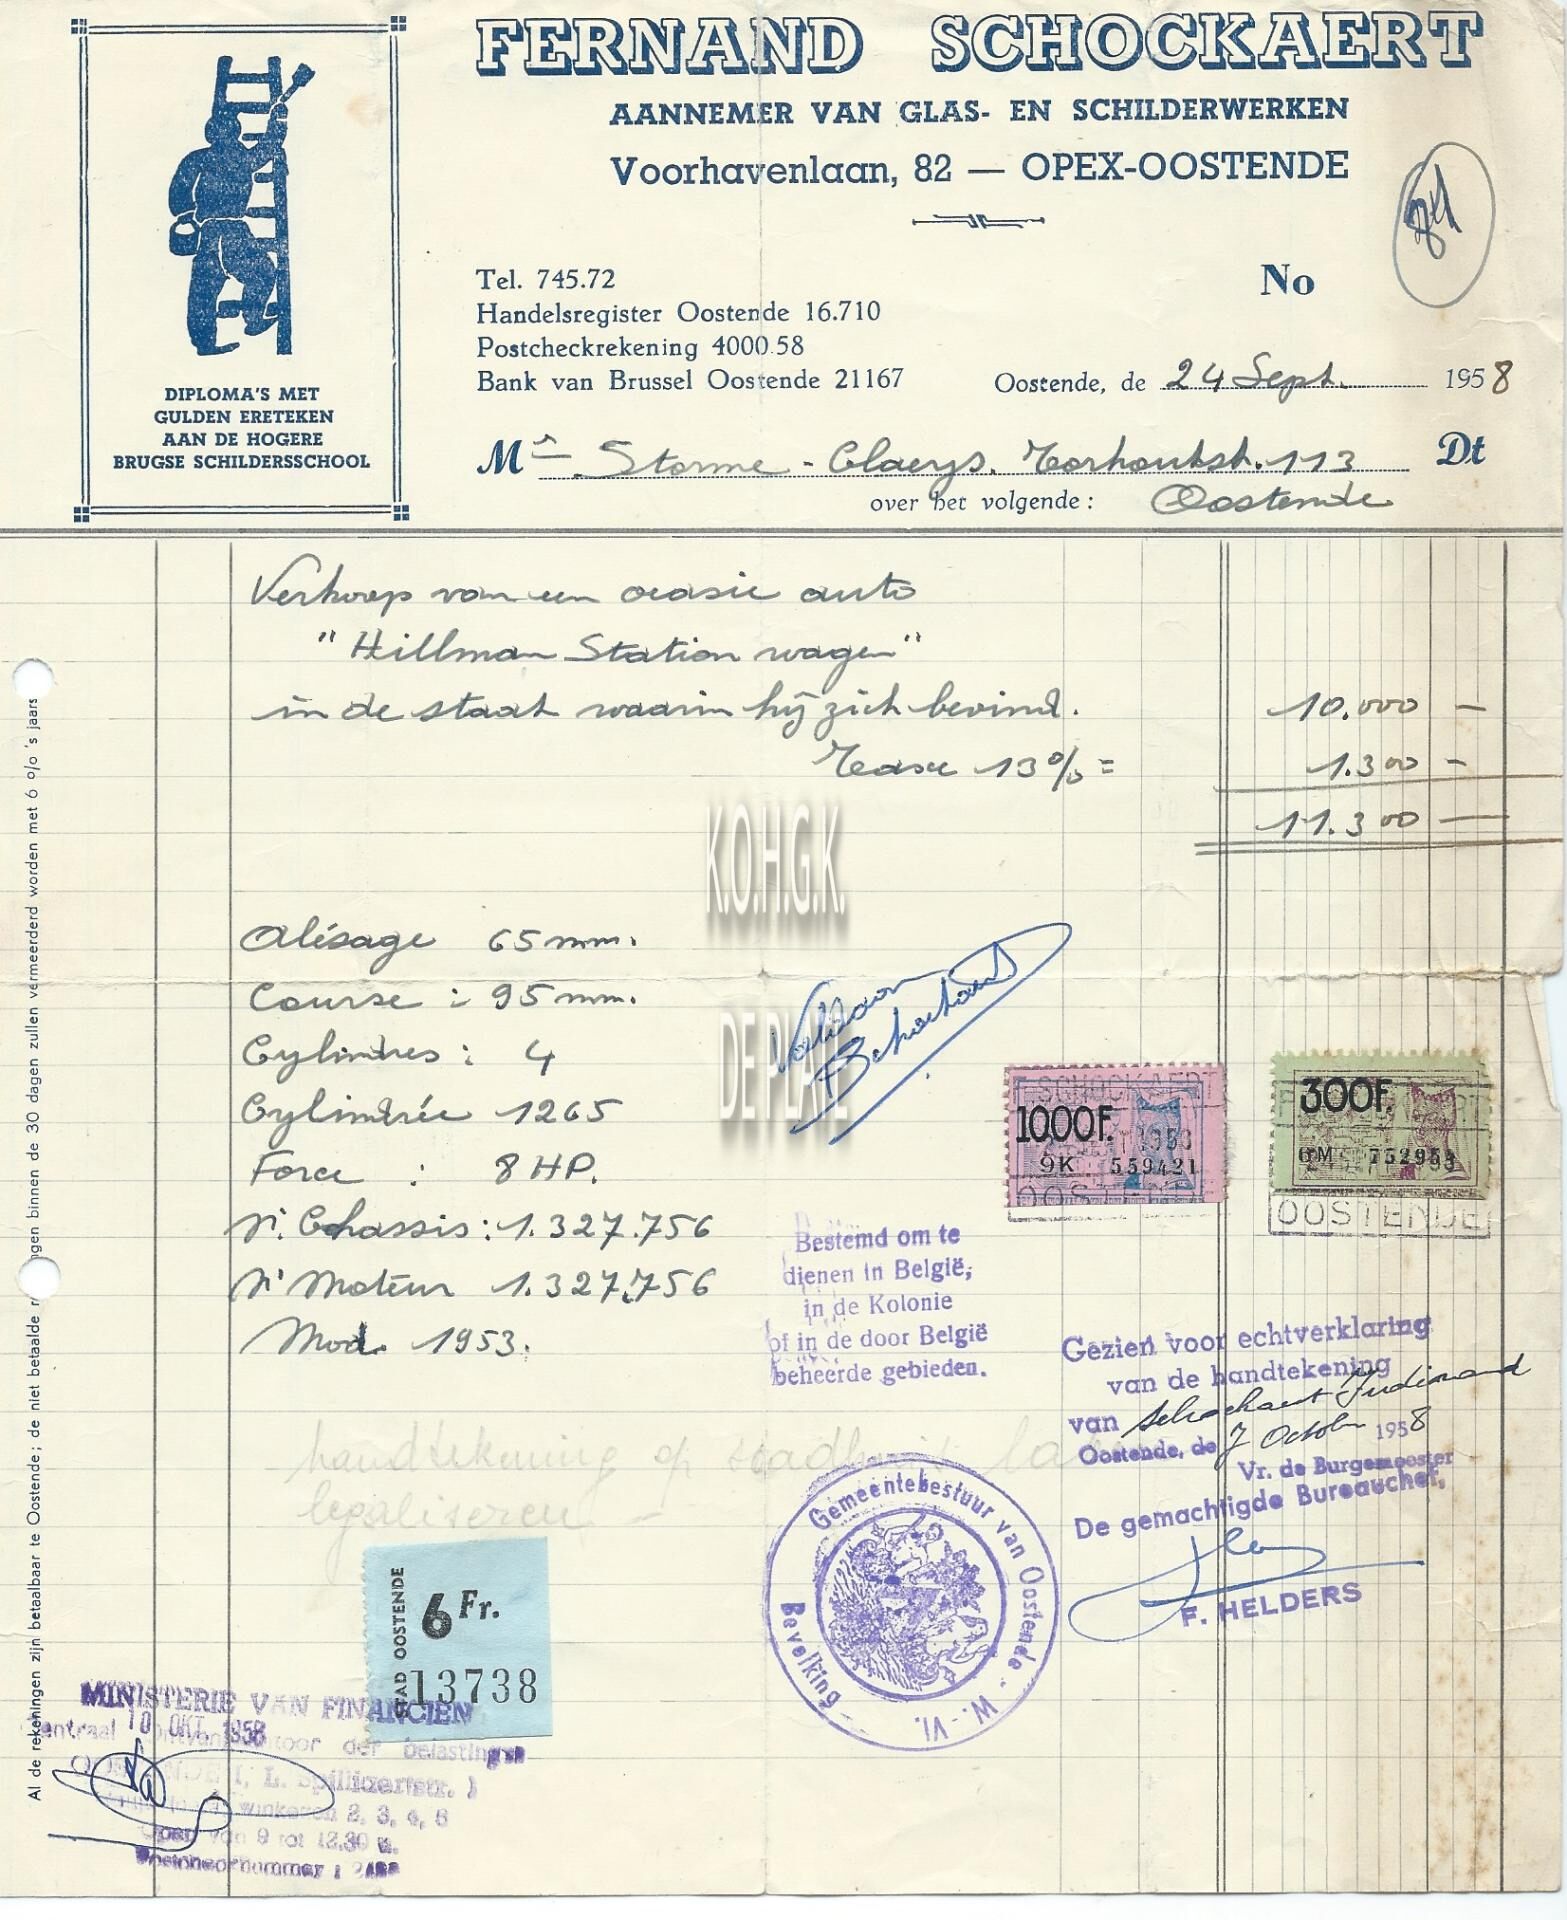 FERNAND SCHOCKAERT
AANNEMER VAN GLAS- EN SCHILDERWERKEN
Voorhavenlaan, 82 — OPEX-OOSTENDE
DIPLOMA'S MET
GULDEN ERETEKEN
AAN DE HOGERE
BRUGSE SCHILDERSSCHOOL
Tel. 745.72
Handelsregister Oostende 16.710
Postcheckrekening 4000.58
Bank van Brussel Oostende 21167
No
Oostende, de 24 Sept. 1958
Mr Storme - Claeys. Torhoutst. 113 Dt
over het volgende : Oostende
Verkoop van een ocasie auto
"Hillman Station wagen"
in de staat waarin hij zich bevind. 10.000 -
Taxe 13% = 1.300 -
11.300 -
K.O.H.G.K.
DE PLATE
Alésage 65 mm.
Course : 95 mm.
Cylindres : 4
Cylindrée 1265
Force : 8 HP.
Nr. Chassis : 1.327.756
Nr Moteur 1.327.756
Mod. 1953.
Voldaan
Schockaert
SCHOCKAERT
1000F.
9K 559421
OOSTENDE
300F.
6M 752954
OOSTENDE
Bestemd om te
dienen in België,
in de Kolonie
of in de door België
beheerde gebieden.
Gezien voor echtverklaring
van de handtekening
van Schockaert Ferdinand
Oostende, de 7 October 1958
Vr. de Burgemeester
De gemachtigde Bureauchef,
F. HELDERS
handtekening op stadhuis
legaliseren -
Gemeentebestuur van Oostende - W.-Vl.
Bevolking
STAD OOSTENDE
6 Fr.
13738
MINISTERIE VAN FINANCIEN
10 OKT. 1958
Centraal ontvangkantoor der belastingen
OOSTENDE I, L. Spilliaertstr. 1
winkeren 2, 3, 4, 5
Open van 9 tot 12.30 u.
Al de rekeningen zijn betaalbaar te Oostende; de niet betaalde rekeningen binnen de 30 dagen zullen vermeerderd worden met 6 o/o 's jaars